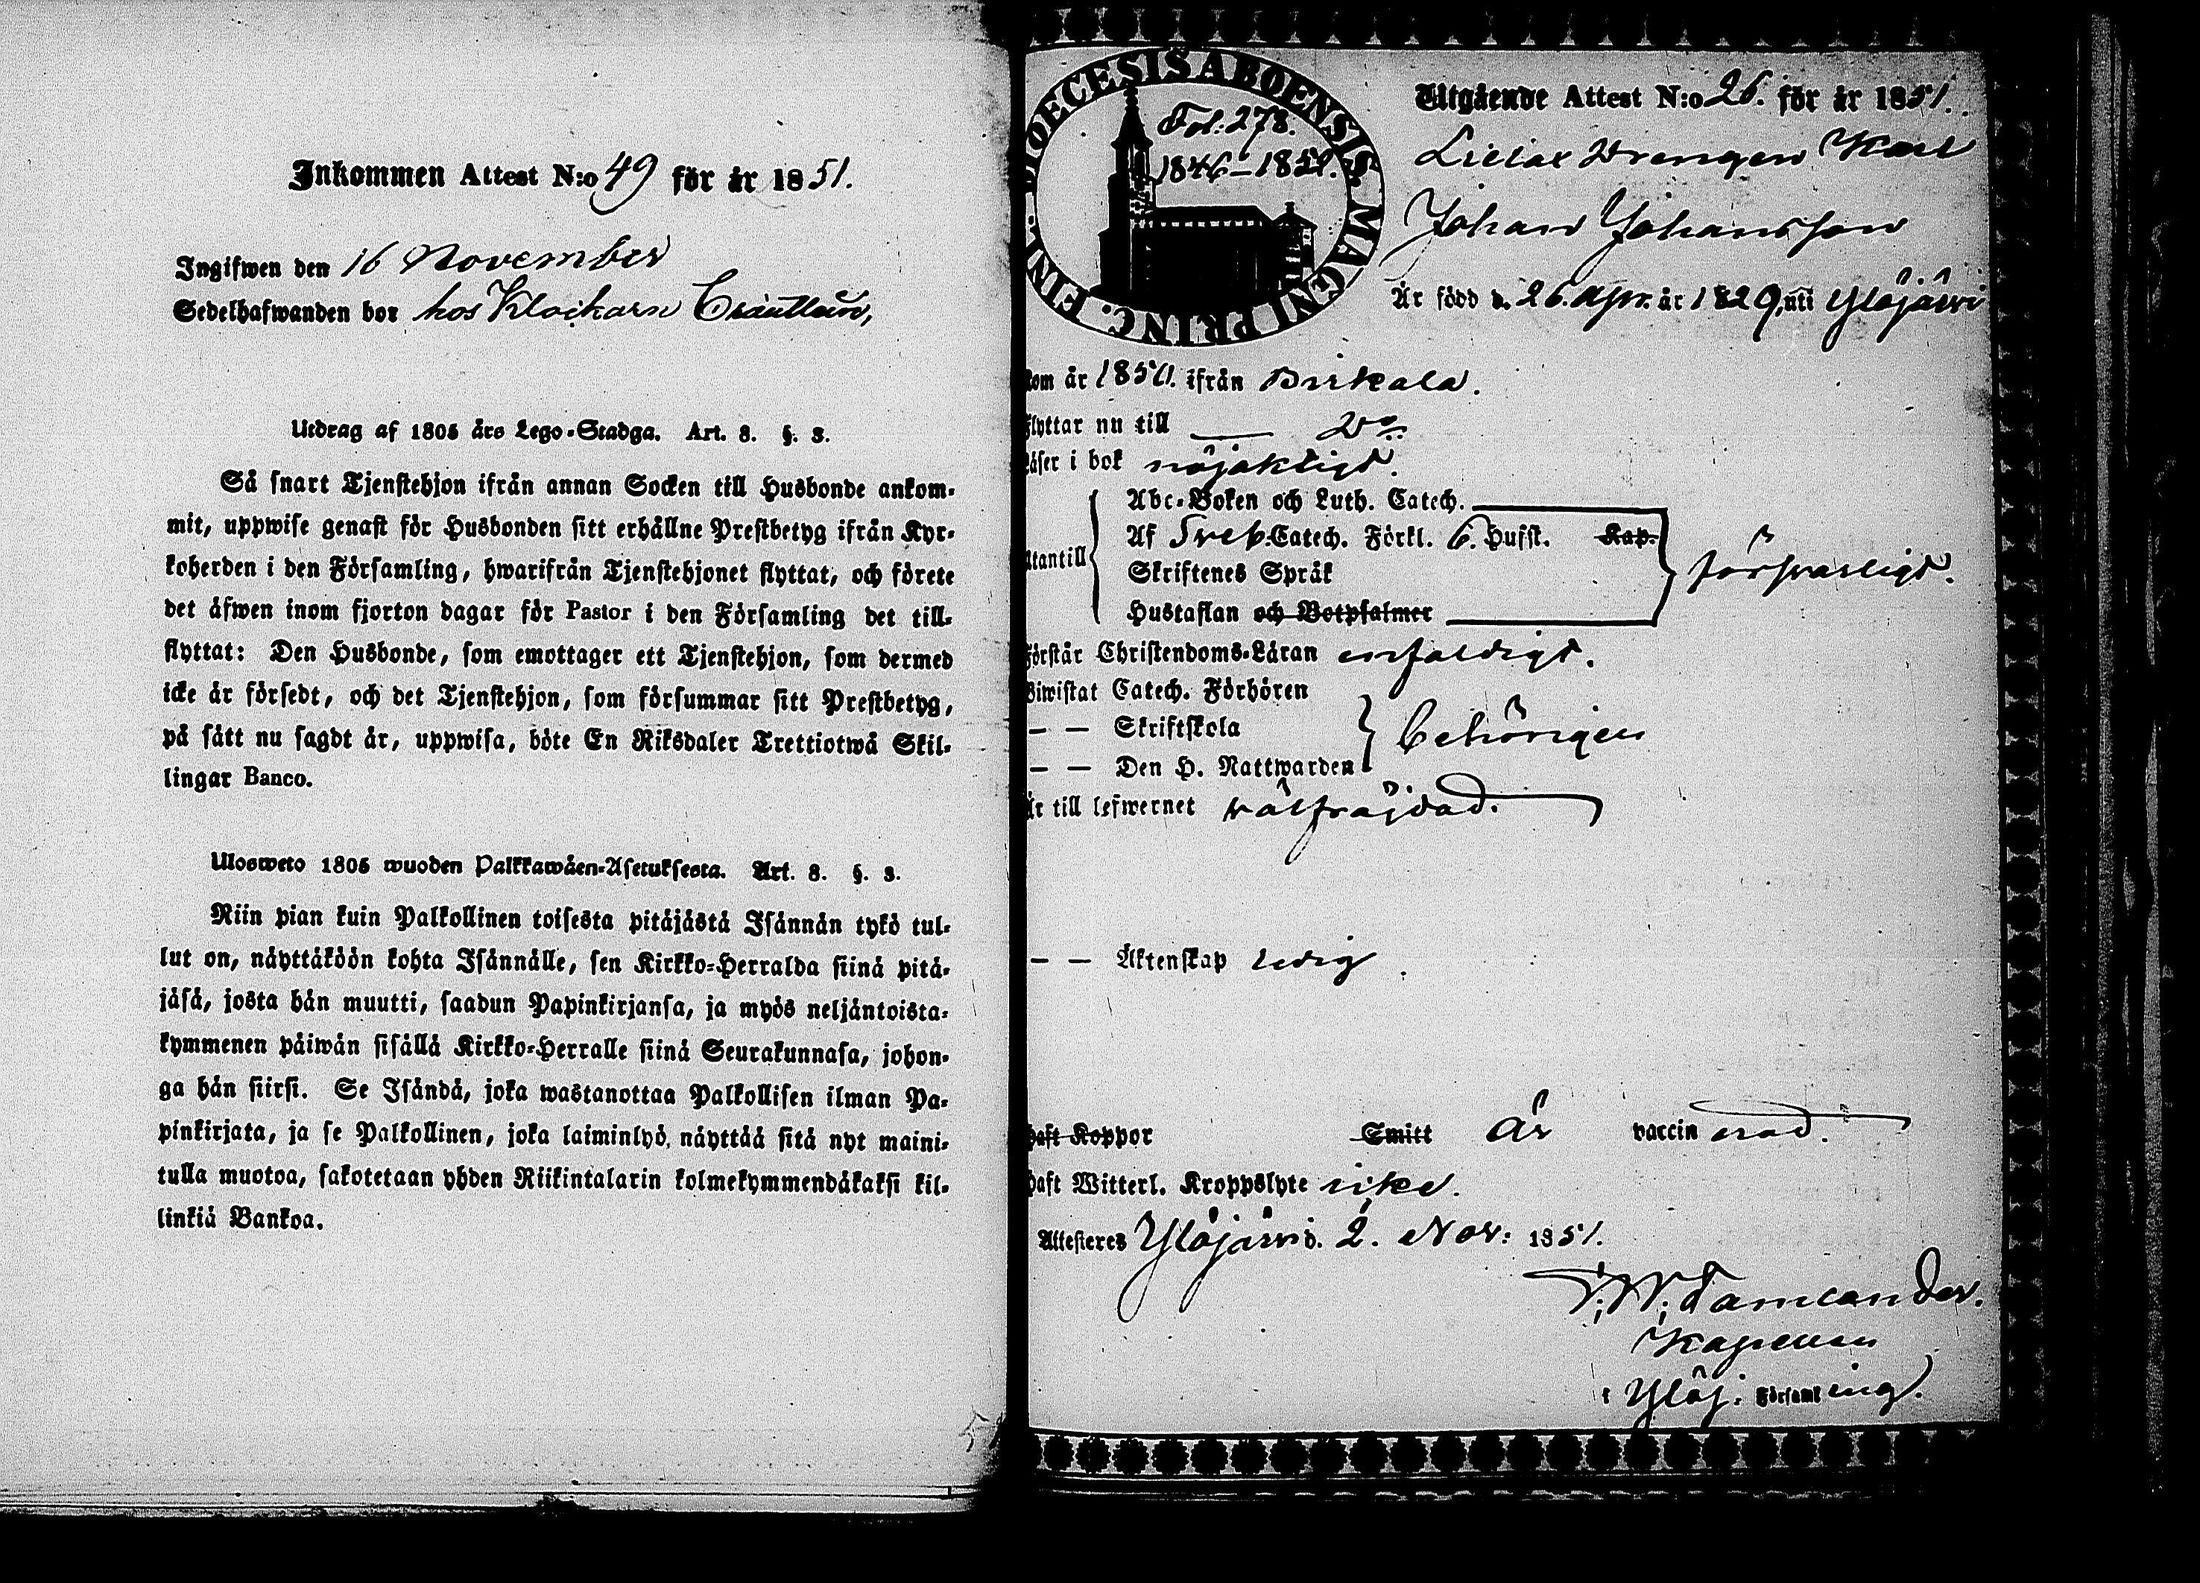 Inkommen Attest N:o 49 för år 1851.
Ingifwen den 16 November
Sedelhafwanden bor hos Klockarn
Utdrag af 1805 års Lego-Stadga. Art. 8. §. 3.
Så snart Tjenstehjon ifrån annan Socken till Husbonde ankom-
mit, uppwise genast för Husbonden sitt erhållne Prestbetyg ifrån Kyr-
koherden i den Församling, hwarifrån Tjenstehjonet flyttat, och förete
det äfwen inom fjorton dagar för Pastor i den Församling det till-
flyttat: Den Husbonde, som emottager ett Tjenstehjon, som dermed
icke är försedt, och det Tjenstehjon, som försummar sitt Prestbetyg,
på sätt nu sagdt är, uppwisa, böte En Riksdaler Trettiotwå Skil-
lingar Banco.
Ulosweto 1805 wuoden Palkkawäen-Asetuksesta. Art. 8. §. 3.
Niin pian kuin Palkollinen toisesta pitäjästä Isännän tykö tul-
lut on, näyttäköön kohta Isännälle, sen Kirkko-Herralda siinä pitä-
jäsä, josta hän muutti, saadun Papinkirjansa, ja myös neljäntoista-
kymmenen päiwän sisällä Kirkko-Herralle siinä Seurakunnasa, johon-
ga hän siirsi. Se Isändä, joka wastanottaa Palkollisen ilman Pa-
pinkirjata, ja se Palkollinen, joka laiminlyö, näyttää sitä nyt maini-
tulla muotoa, sakotetaan yhden Riikintalarin kolmekymmendäkaksi kil-
linkiä Bankoa.
DIOECESIS ABOENSIS MAGNI PRINC. FINL.
Fol: 278.
1846–1852.
Utgående Attest N:o 26. för år 1851.
Drengen Karl
Johan Johansson
Är född d. 26. Apr. år 1829, uti Ylöjärvi
kom år 1850. ifrån Birkala.
flyttar nu till — Do
Läser i bok nöjaktigt.
Abc-Boken och Luth. Catech.
Af Sveb. Catech. Förkl. 6. Hufst. Kap.
Utantill försvarligt.
Skriftenes Språk
Hustaflan och Botpsalmer
Förstår Christendoms-Läran enfaldigt.
Biwistat Catech. Förhören
— — Skriftskola behörigen
— — Den H. Nattwarden
Är till lefwernet välfräjdad.
— — Äktenskap ledig.
haft Koppor Smitt är vaccinerad.
haft Witterl. Kroppslyte icke.
Attesteres Ylöjärvi d. 2. Nov: 1851.
Tamlander.
Kapellan
i Ylöj: Församling.